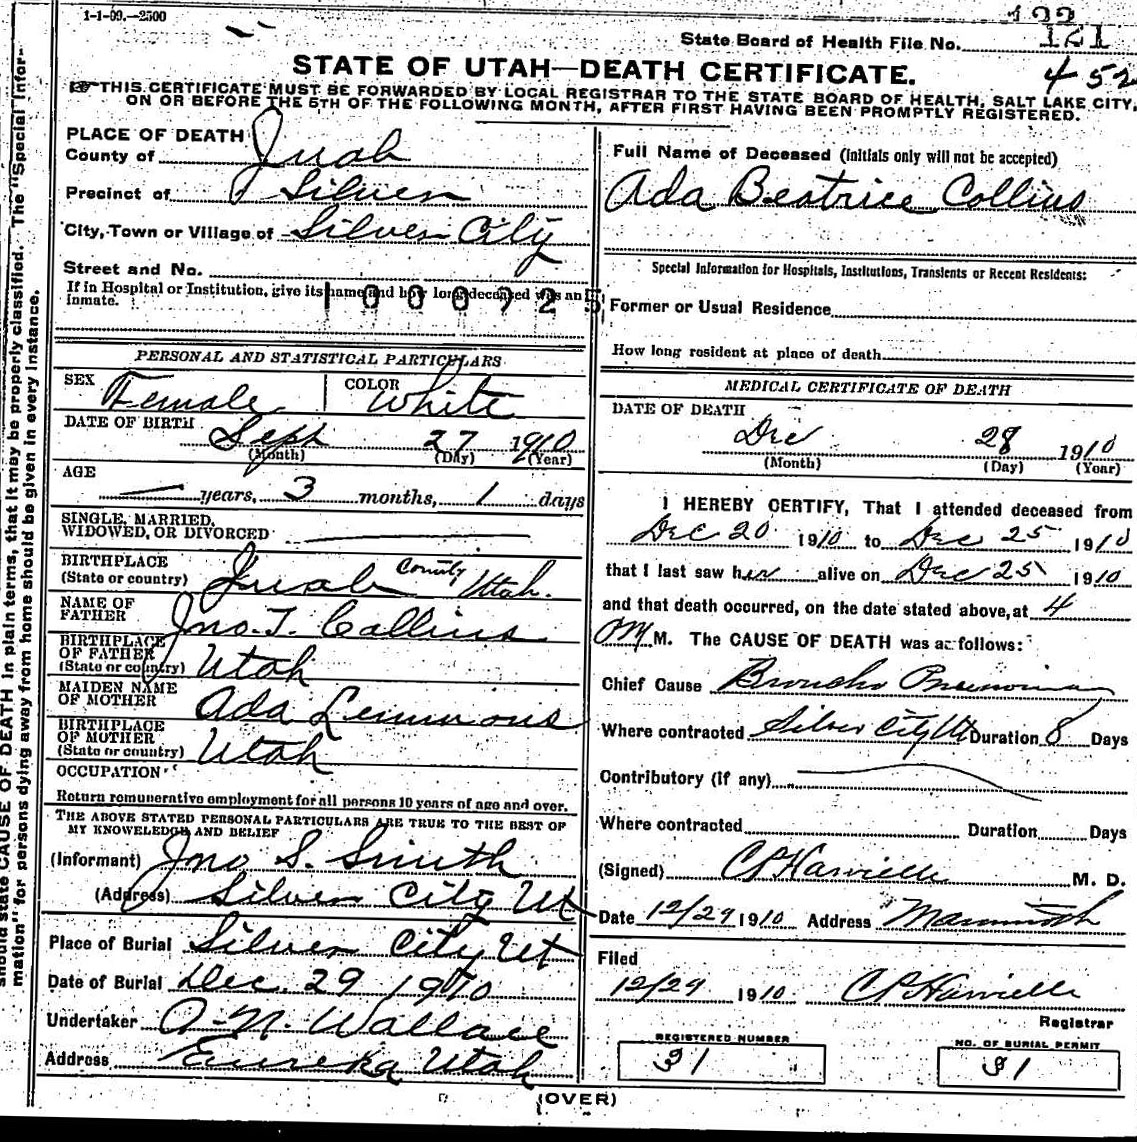 1-1-09.—2500
State Board of Health File No. 121
452
STATE OF UTAH—DEATH CERTIFICATE.
THIS CERTIFICATE MUST BE FORWARDED BY LOCAL REGISTRAR TO THE STATE BOARD OF HEALTH, SALT LAKE CITY,
ON OR BEFORE THE 5TH OF THE FOLLOWING MONTH, AFTER FIRST HAVING BEEN PROMPTLY REGISTERED.
PLACE OF DEATH
County of Juab
Precinct of Silver
City, Town or Village of Silver City
Street and No.
If in Hospital or Institution, give its name and how long deceased was an
inmate.
1000725
PERSONAL AND STATISTICAL PARTICULARS
SEX Female COLOR White
DATE OF BIRTH Sept 27 1910
(Month) (Day) (Year)
AGE
— years, 3 months, 1 days
SINGLE, MARRIED,
WIDOWED, OR DIVORCED
BIRTHPLACE
(State or country) Juab County Utah.
NAME OF
FATHER Jno. T. Collins
BIRTHPLACE
OF FATHER
(State or country) Utah
MAIDEN NAME
OF MOTHER Ada Lemmons
BIRTHPLACE
OF MOTHER
(State or country) Utah
OCCUPATION
Return remunerative employment for all persons 10 years of age and over.
THE ABOVE STATED PERSONAL PARTICULARS ARE TRUE TO THE BEST OF
MY KNOWELEDGE AND BELIEF
(Informant) Jno S. Smith
(Address) Silver City Ut
Place of Burial Silver City Ut
Date of Burial Dec. 29 1910
Undertaker A. N. Wallace
Address Eureka Utah
Full Name of Deceased (Initials only will not be accepted)
Ada Beatrice Collins
Special Information for Hospitals, Institutions, Transients or Recent Residents:
Former or Usual Residence
How long resident at place of death
MEDICAL CERTIFICATE OF DEATH
DATE OF DEATH
Dec 28 1910
(Month) (Day) (Year)
I HEREBY CERTIFY, That I attended deceased from
Dec 20 1910 to Dec 25 1910
that I last saw her alive on Dec 25 1910
and that death occurred, on the date stated above, at 4
M. The CAUSE OF DEATH was as follows:
Chief Cause Broncho Pneumonia
Where contracted Silver City Ut Duration 8 Days
Contributory (if any)
Where contracted Duration Days
(Signed) M. D.
Date 12/29 1910 Address Mammoth
Filed
12/29 1910
Registrar
REGISTERED NUMBER
31
NO. OF BURIAL PERMIT
31
(OVER)
should state CAUSE OF DEATH in plain terms, that it may be properly classified. The "Special Infor-
mation" for persons dying away from home should be given in every instance.